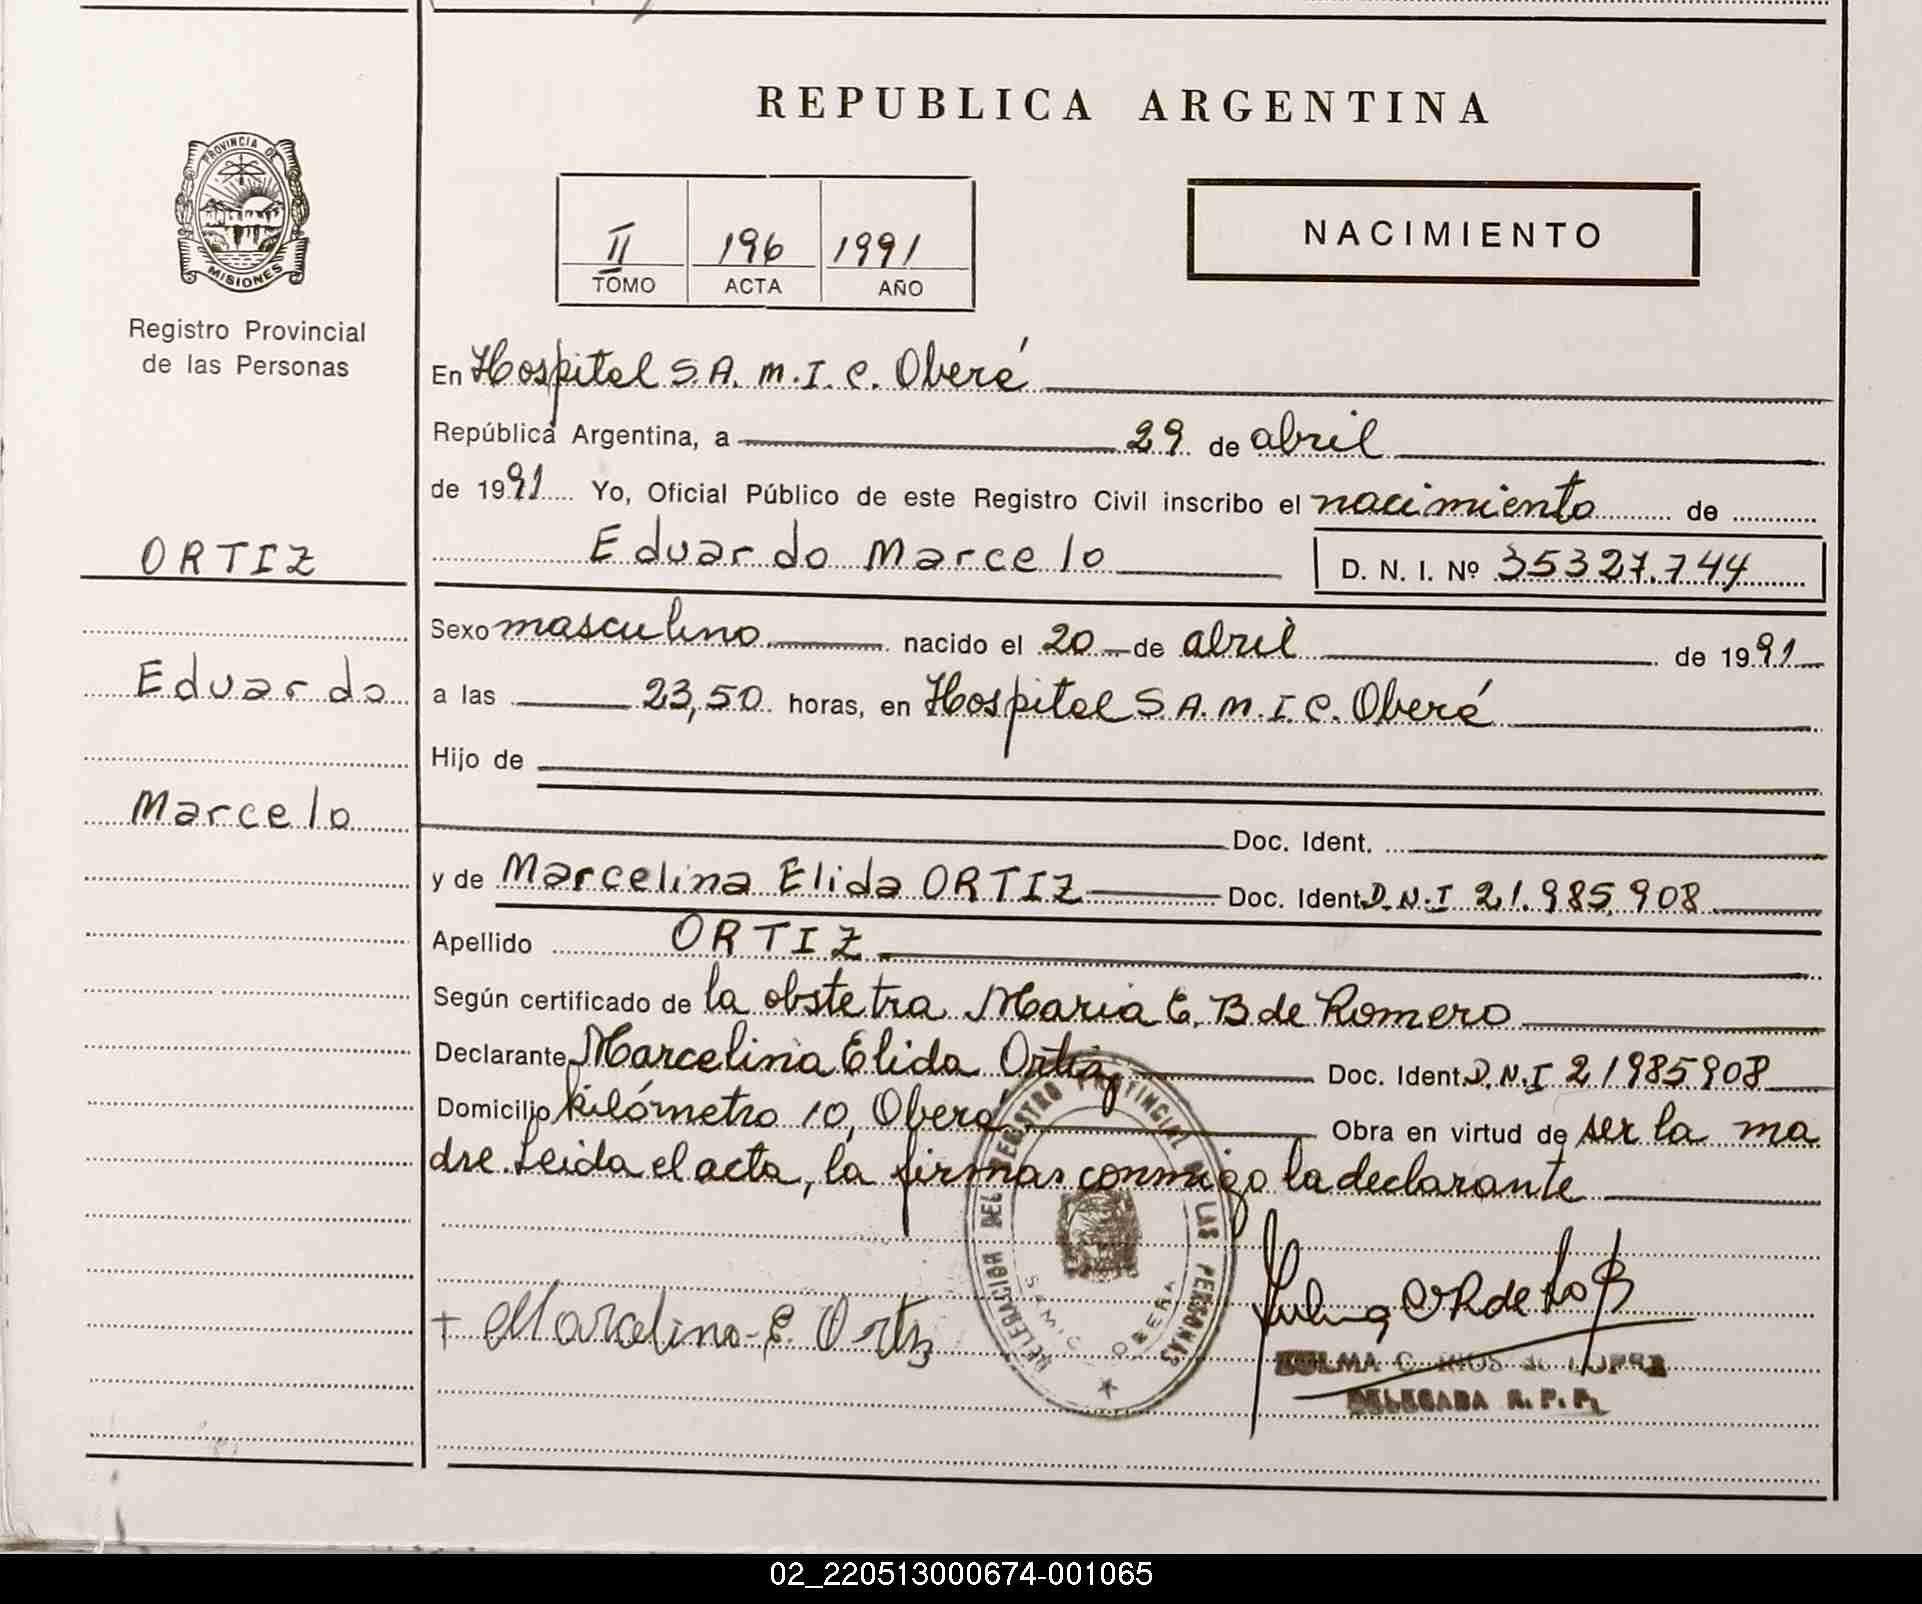 REPUBLICA ARGENTINA
PROVINCIA DE MISIONES
Registro Provincial
de las Personas
II 196 1991
TOMO ACTA AÑO
NACIMIENTO
En Hospital S.A.M.I.C. Oberá
República Argentina, a 29 de abril
de 1991 Yo, Oficial Público de este Registro Civil inscribo el nacimiento de
Eduardo Marcelo D. N. I. Nº 35327.744
ORTIZ
Eduardo
Marcelo
Sexo masculino nacido el 20 de abril de 1991
a las 23,50 horas, en Hospital S.A.M.I.C. Oberá
Hijo de
Doc. Ident.
y de Marcelina Elida ORTIZ Doc. Ident. D.N.I 21.985.908
Apellido ORTIZ
Según certificado de la obstetra Maria E. B de Romero
Declarante Marcelina Elida Ortiz Doc. Ident. D.N.I 21985908
Domicilio kilómetro 10, Oberá Obra en virtud de ser la ma
dre. Leida el acta, la firman conmigo la declarante
+ Marcelina E. Ortiz
DELEGACION DEL REGISTRO PROVINCIAL DE LAS PERSONAS
SAMIC OBERA
C. RIOS de LOPEZ
DELEGADA R.P.P.
02_220513000674-001065